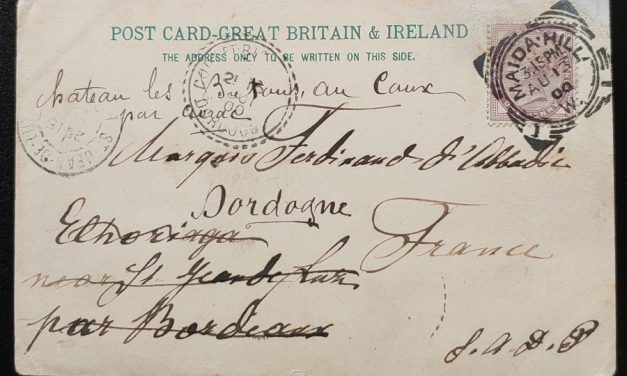 POST CARD-GREAT BRITAIN & IRELAND
THE ADDRESS ONLY TO BE WRITTEN ON THIS SIDE.
MAIDA·HILL
3.15PM
AU 1
00
W.
Château les Tours, au Caux
par
Marquis Ferdinand d'Abbadie
Dordogne
France
near St Jean de Luz
par Bordeaux
S.A.D.P